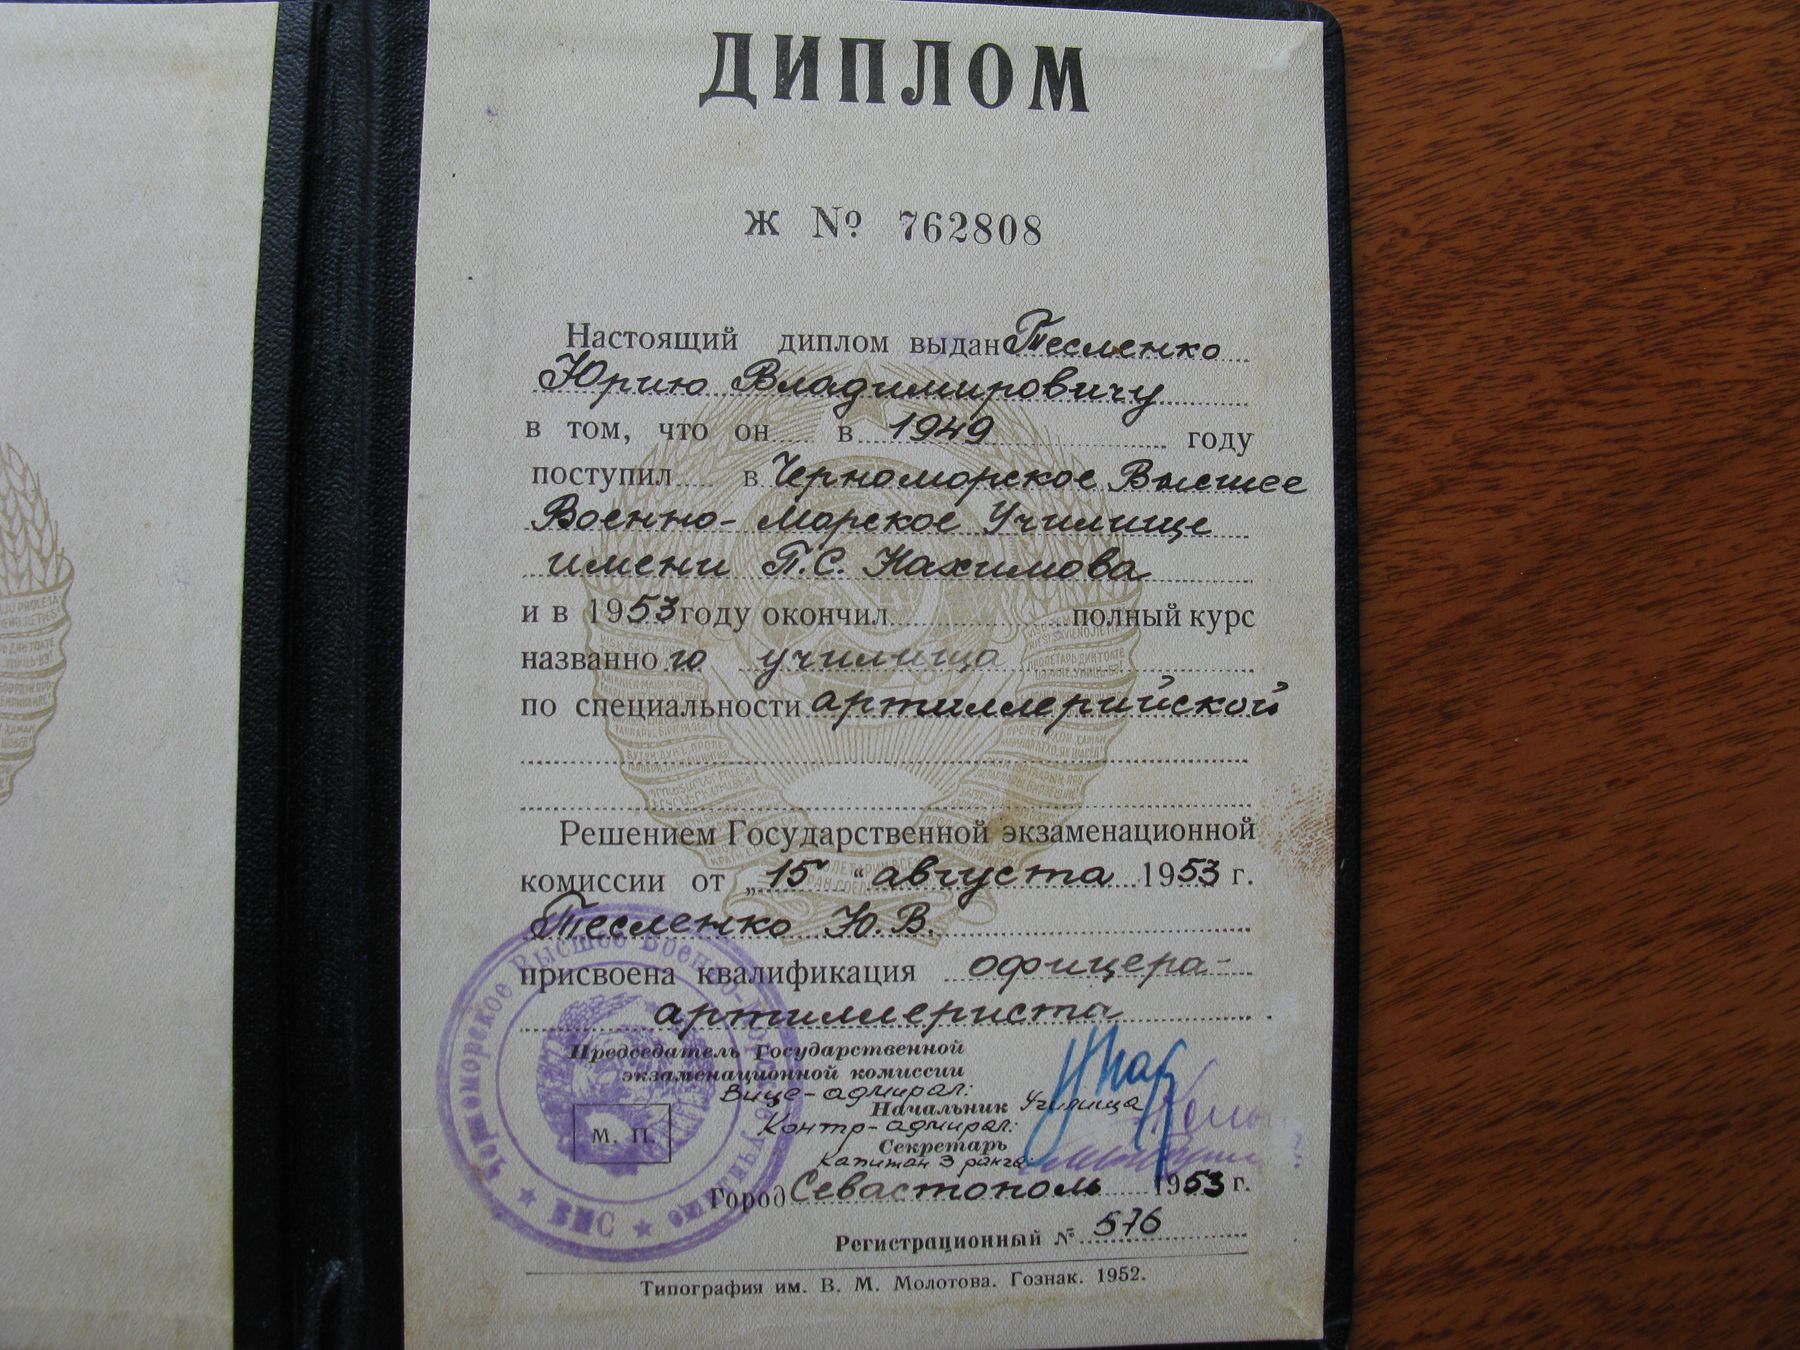 ДИПЛОМ
Ж № 762808
Настоящий диплом выдан Тесленко
Юрию Владимировичу
в том, что он в 1949 году
поступил в Черноморское Высшее
Военно-Морское Училище
имени П.С. Нахимова
и в 1953 году окончил полный курс
названного училища
по специальности артиллерийской
Решением Государственной экзаменационной
комиссии от „15“ августа 1953 г.
Тесленко Ю.В.
присвоена квалификация офицера-
артиллериста
Председатель Государственной
экзаменационной комиссии
Вице-адмирал:
Начальник Училища
Контр-адмирал:
Секретарь
Капитан 3 ранга:
М. П.
Город Севастополь 1953 г.
Регистрационный № 576
Типография им. В. М. Молотова. Гознак. 1952.
Черноморское Высшее Военно-Морское училище
ВМС